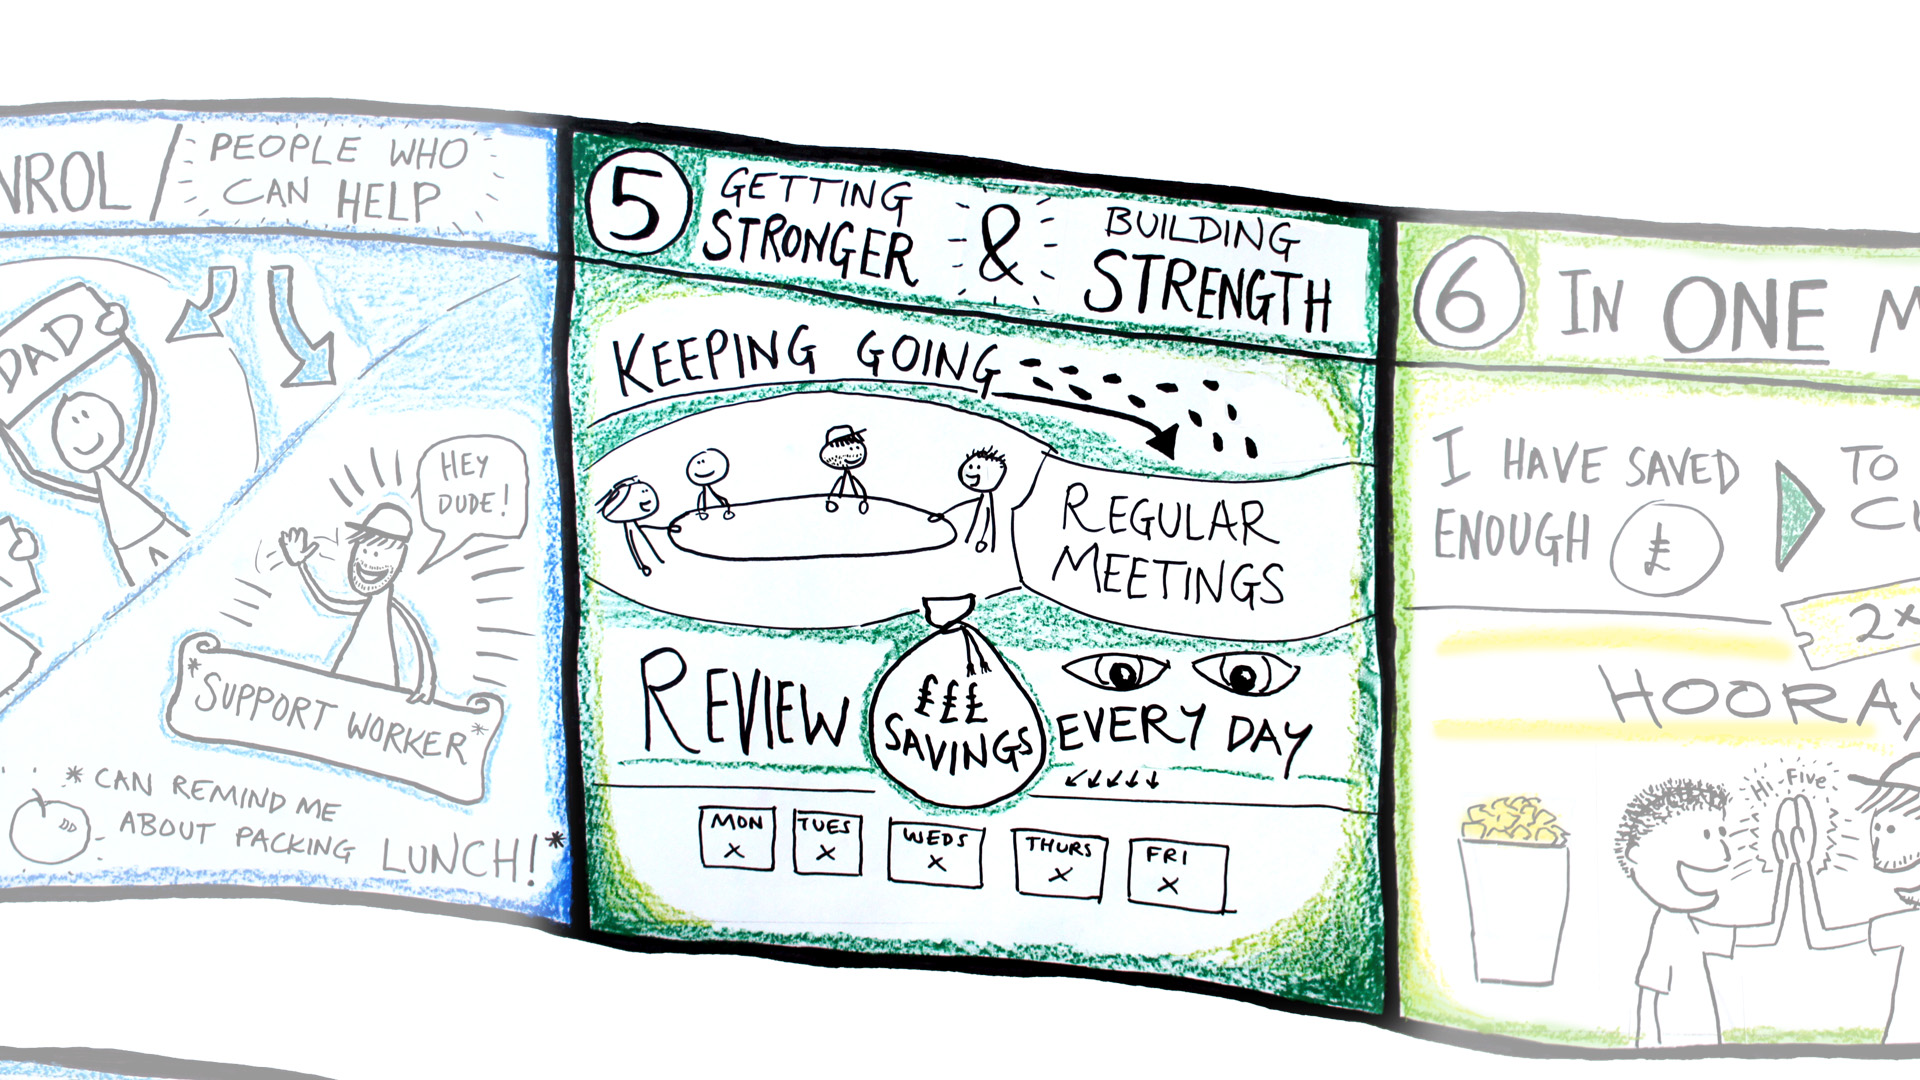 PEOPLE WHO
CAN HELP
DAD
HEY
DUDE!
*SUPPORT WORKER*
* CAN REMIND ME
ABOUT PACKING LUNCH!*
5
GETTING
STRONGER
&
BUILDING
STRENGTH
KEEPING GOING
REGULAR
MEETINGS
REVIEW
£££
SAVINGS
EVERY DAY
MON
X
TUES
X
WEDS
X
THURS
X
FRI
X
6
IN ONE
I HAVE SAVED
ENOUGH £
TO
2x
HOORAY
Hi-Five